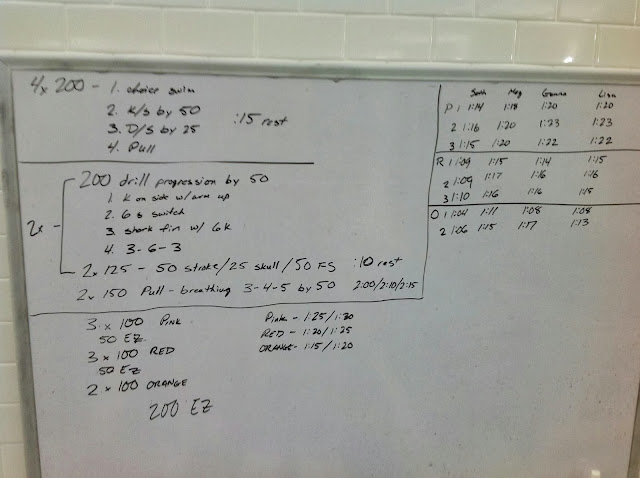 4x 200 - 1. choice swim
2. K/S by 50
3. D/S by 25
4. Pull
:15 rest
2x - 200 drill progression by 50
1 K on side w/arm up
2. 6 s switch
3 shark fin w/ 6k
4. 3-6-3
2x 125 - 50 stroke/25 skull/50 FS :10 rest
2x 150 Pull - breathing 3-4-5 by 50 2:00/2:10/2:15
3 x 100 Pink
50 EZ
3 x 100 RED
50 EZ
2 x 100 ORANGE
200 EZ
Pink - 1:25/1:30
RED - 1:20/1:25
ORANGE - 1:15/1:20
Sarah Meg Gemma Lisa
P 1 1:14 1:18 1:20 1:20
2 1:16 1:20 1:23 1:23
3 1:15 1:20 1:22 1:22
R 1 1:09 1:15 1:14 1:15
2 1:09 1:17 1:16 1:16
3 1:10 1:16 1:16 1:15
O 1 1:04 1:11 1:08 1:08
2 1:06 1:15 1:17 1:13